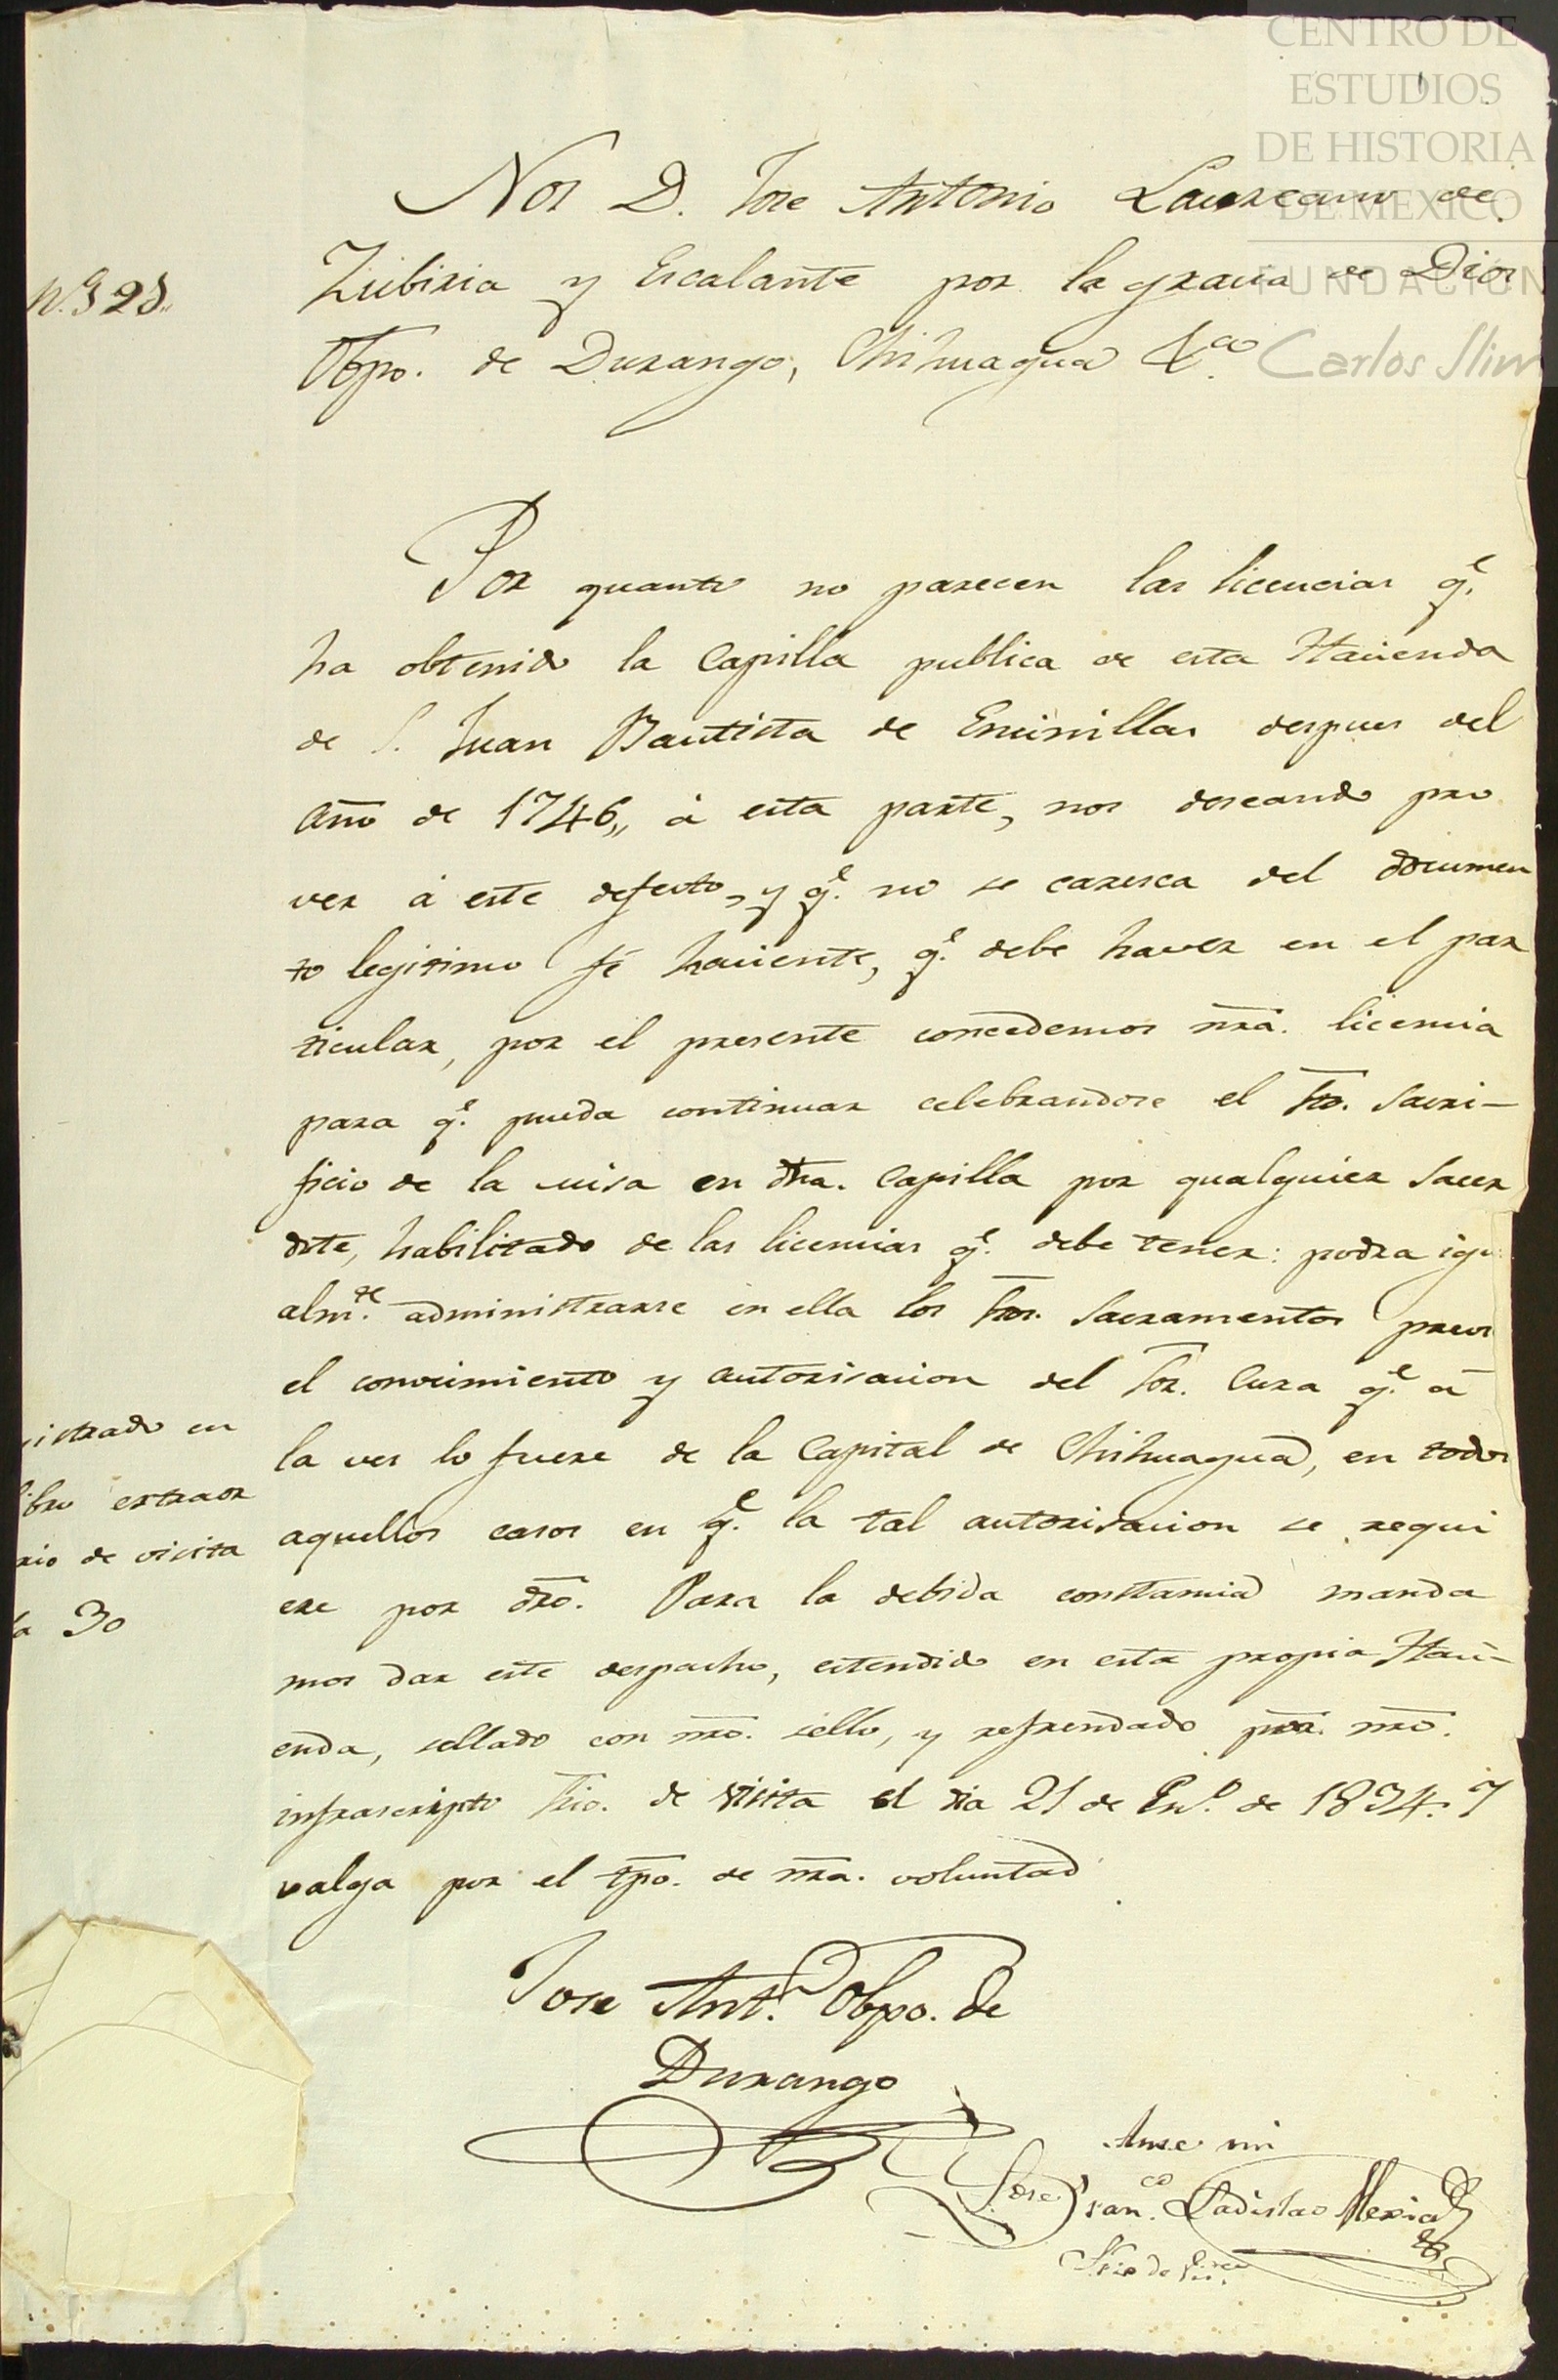 CENTRO DE
ESTUDIOS
DE HISTORIA
DE MEXICO
FUNDACION
Carlos Slim
Nos D. Jose Antonio Laureano de
Zubiria y Escalante por la gracia de Dios
Obpo. de Durango, Chihuagua &ca.
Nº 28.
Por quanto no parecen las licencias qe.
ha obtenido la Capilla publica de esta Hacienda
de S. Juan Bautista de Encinillas despues del
año de 1746,, á esta parte, nos deseando pro
veer á este defecto, y qe. no se caresca del documen
to legitimo fé haciente, qe. debe haver en el par
ticular, por el presente concedemos nrã. licencia
para qe. pueda continuar celebrandose el Sto. Sacri-
ficio de la misa en dha. Capilla por qualquier Sacer
dote, habilitado de las licencias qe. debe tener: podra igu
almte. administrarse en ella los Stos. Sacramentos previo
el conocimiento y autorisacion del Sor. Cura qe. á
la ves lo fuere de la Capital de Chihuagua, en todos
aquellos casos en qe. la tal autorisacion se requi
ere por dro. Para la debida constancia manda
mos dar este despacho, estendido en esta propia Haci-
enda, sellado con nro. sello, y refrendado por nro.
infrascripto Srio. de visita el dia 21 de Eno. de 1834. Y
valga por el tpo. de nra. voluntad
istrado en
ibro extraor
rio de visita
a 30
Jose Anto. Obpo. de
Durango
Ante mi
Jose Franco. Ladislao Mexia
Srio de Vista.